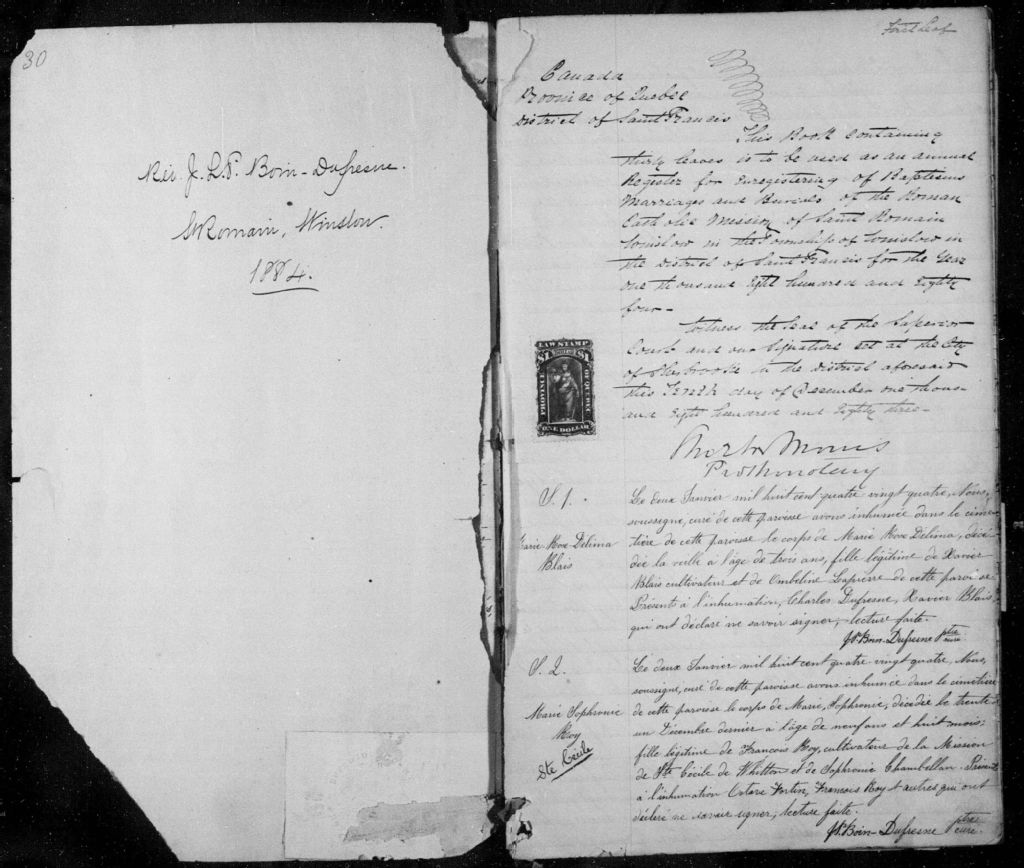 30
Rev. J. L. P. Boin-Dufresne.
St Romain, Winslow.
1884.
First Leaf
Canada
Province of Quebec
District of Saint Francis
This Book containing
thirty leaves is to be used as an annual
Register for Enregistering of Baptisms
Marriages and Burials of the Roman
Catholic Mission of Saint Romain
Winslow in the Township of Winslow in
the District of Saint Francis for the Year
one thousand Eight hundred and Eighty
four -
Witness the Seal of the Superior
Court and our Signature set at the City
of Sherbrooke in the district aforesaid
this Tenth day of December one thous-
and Eight hundred and Eighty three -
LAW STAMP
$1 $1
PROVINCE OF QUEBEC
ONE DOLLAR
Prothonotary
S. 1.
Marie Rose Délima
Blais
Le deux Janvier mil huit cent quatre vingt quatre, Nous,
soussigné, curé de cette paroisse avons inhumée dans le cime-
tière de cette paroisse le corps de Marie Rose Délima, décé-
dée la veille à l'âge de trois ans, fille légitime de Xavier
Blais cultivateur et de Ombéline Lapierre de cette paroisse
Présents à l'inhumation, Charles Dufresne, Xavier Blais,
qui ont déclaré ne savoir signer, lecture faite.
J.P. Boin-Dufresne ptre curé
S. 2.
Marie Sophronie
Roy
Ste Cécile
Le deux Janvier mil huit cent quatre vingt quatre, Nous,
soussigné, curé de cette paroisse avons inhumée dans le cimetière
de cette paroisse le corps de Marie, Sophronie, décédée le trente-
un Décembre dernier à l'âge de neuf ans et huit mois;
fille légitime de Francois Roy, cultivateur de la Mission
de Ste Cécile de Whitton et de Sophronie Chambellan. Présent
à l'inhumation Octave Fortin, Francois Roy & autres qui ont
déclaré ne savoir signer, lecture faite.
J.P. Boin-Dufresne ptre curé.